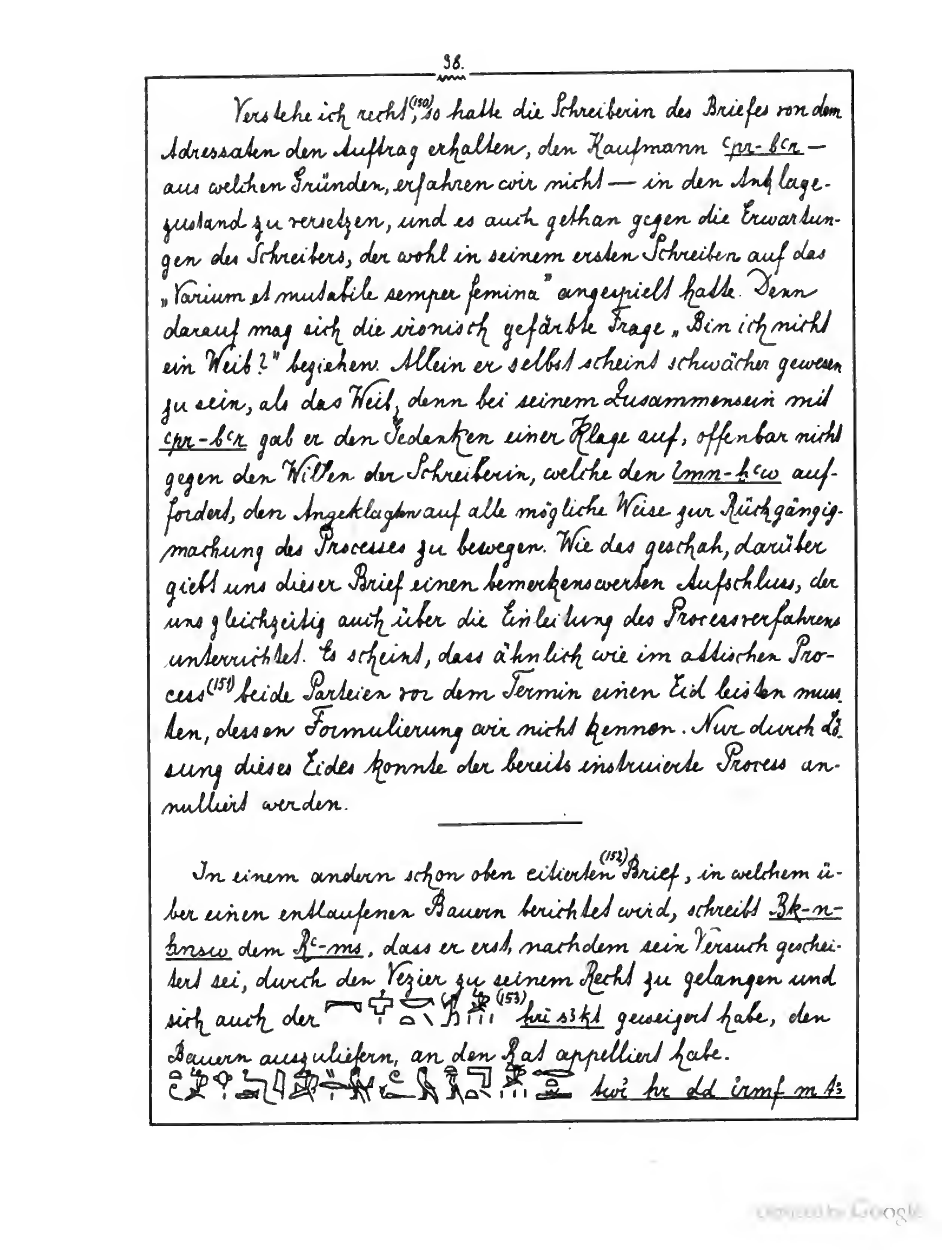 38.
Verstehe ich recht,(150) so hatte die Schreiberin des Briefes von dem
Adressaten den Auftrag erhalten, den Kaufmann ꜥpr-bꜥr —
aus welchen Gründen, erfahren wir nicht — in den Anklage-
zustand zu versetzen, und es auch gethan gegen die Erwartun-
gen des Schreibers, der wohl in seinem ersten Schreiben auf das
„Varium et mutabile semper femina" angespielt hatte. Denn
darauf mag sich die ironisch gefärbte Frage „Bin ich nicht
ein Weib?" beziehen. Allein er selbst scheint schwächer gewesen
zu sein, als das Weib, denn bei seinem Zusammensein mit
ꜥpr-bꜥr gab er den Gedanken einer Klage auf, offenbar nicht
gegen den Willen der Schreiberin, welche den imn-ḥꜥw auf-
fordert, den Angeklagten auf alle mögliche Weise zur Rückgängig-
machung des Processes zu bewegen. Wie das geschah, darüber
giebt uns dieser Brief einen bemerkenswerten Aufschluss, der
uns gleichzeitig auch über die Einleitung des Processverfahrens
unterrichtet. Es scheint, dass ähnlich wie im attischen Pro-
cess(151) beide Parteien vor dem Termin einen Eid leisten muss-
ten, dessen Formulierung wir nicht kennen. Nur durch Lö-
sung dieses Eides konnte der bereits instruierte Process an-
nulliert werden.
In einem andern schon oben citierten(152) Brief, in welchem ü-
ber einen entlaufenen Bauern berichtet wird, schreibt Bk-n-
ḫnsw dem Rꜥ-ms, dass er erst, nachdem sein Versuch geschei-
tert sei, durch den Vezier zu seinem Recht zu gelangen und
sich auch der (153) ḥri sꜣkt geweigert habe, den
Bauern auszuliefern, an den Rat appelliert habe.
twi ḥr dd irmf m tꜣ